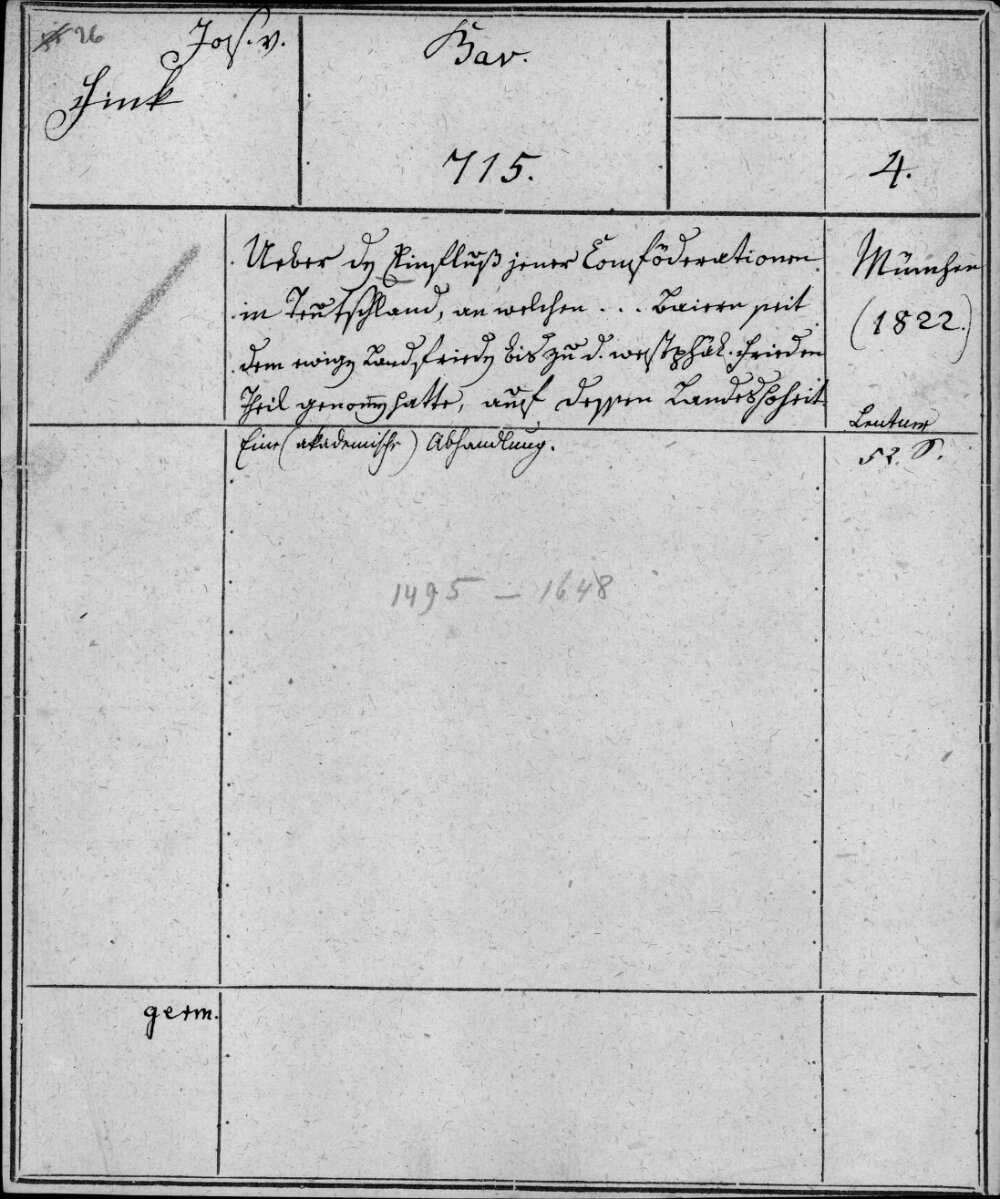 26
Jos. v.
Fink
Bav.
715.
4.
Ueber den Einfluß jener Conföderationen
in Teutschland, an welchen ... Baiern seit
dem ewigen Landfrieden bis zu d. westphäl. Frieden
Theil genommen hatte, auf dessen Landeshoheit
Eine (akademische) Abhandlung.
München
(1822.)
Lentner
52. S.
1495 – 1648
germ.